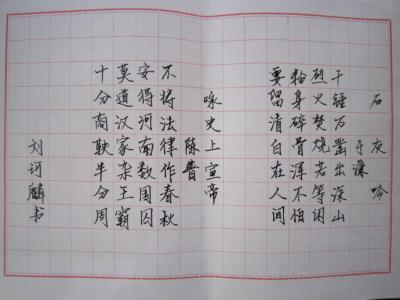 石灰吟
于谦
千锤万凿出深山
烈火焚烧若等闲
粉身碎骨浑不怕
要留清白在人间
咏史上宣帝
陈普
不将法律作春秋
安得河南数国囚
莫道汉家杂王霸
十分商鞅半分周
刘诃麟书